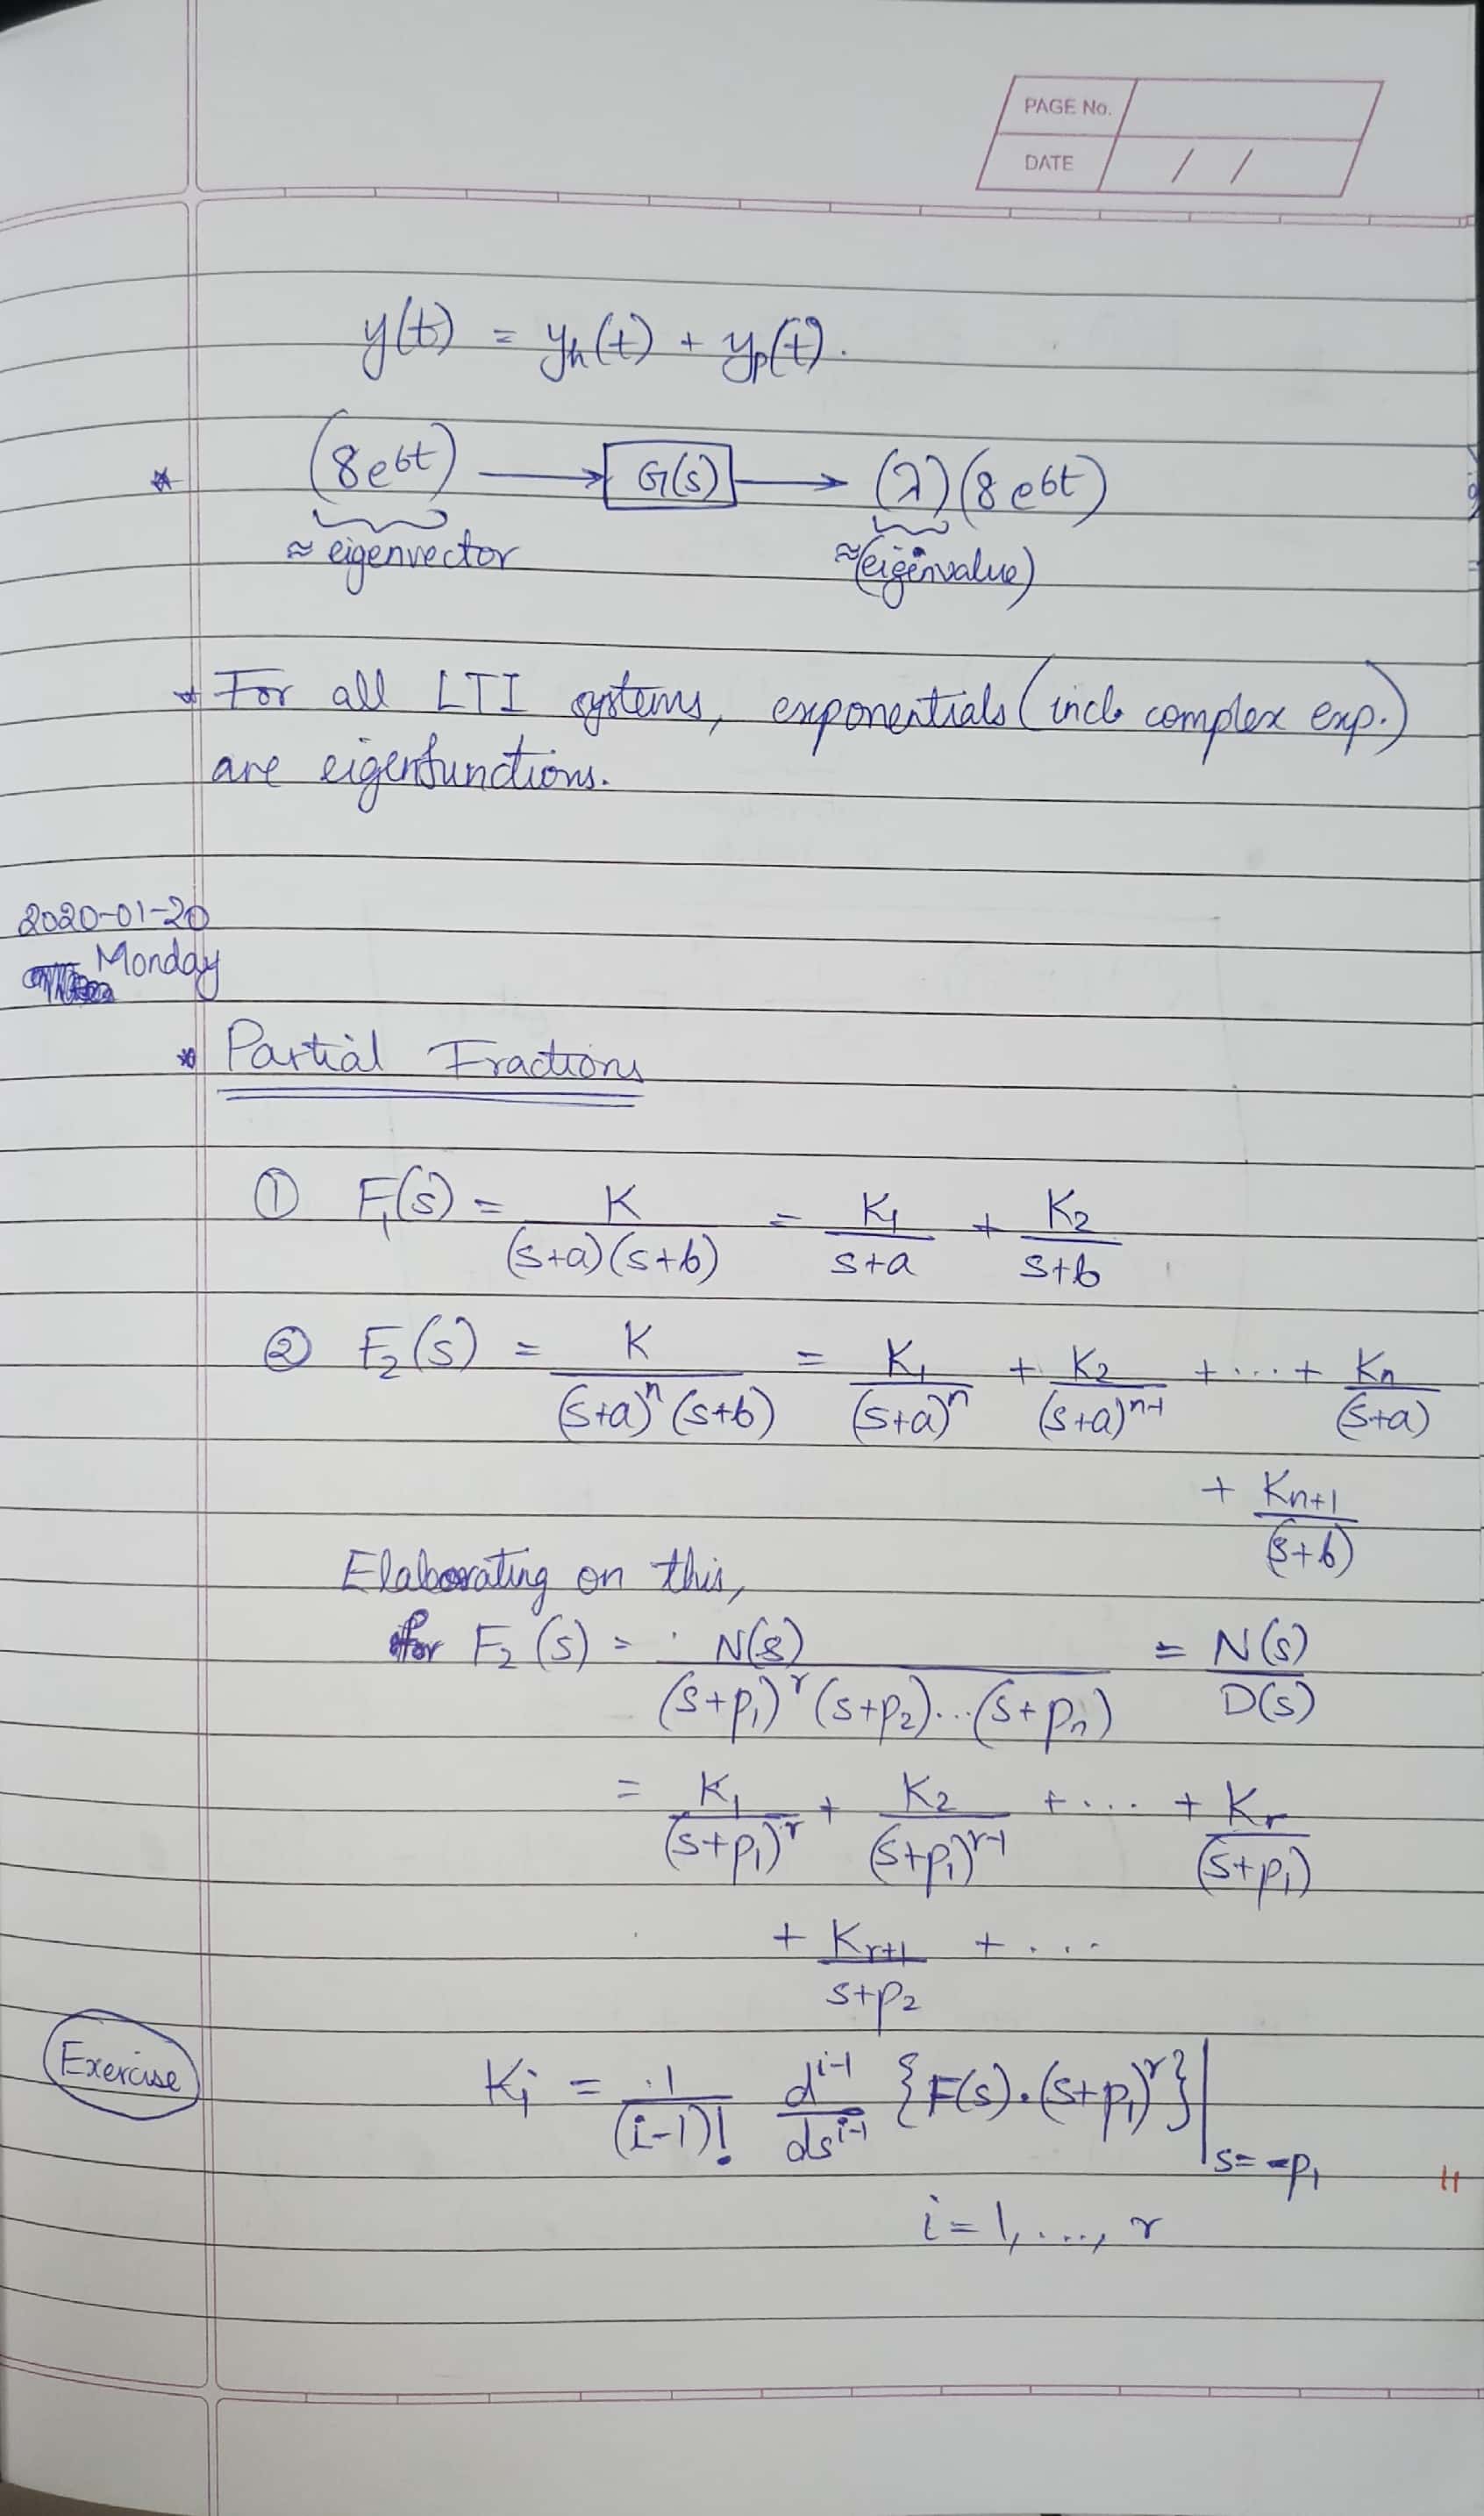 PAGE No.
DATE / /
y(t) = yh(t) + yp(t).
* (8e^6t) → G(s) → (λ)(8e^6t)
≈ eigenvector ≈(eigenvalue)
* For all LTI systems, exponentials (incl. complex exp.)
are eigenfunctions.
2020-01-20
Monday
* Partial Fractions
① F₁(s) = K/((s+a)(s+b)) = K₁/(s+a) + K₂/(s+b)
② F₂(s) = K/((s+a)^n (s+b)) = K₁/(s+a)^n + K₂/(s+a)^(n-1) + ... + Kn/(s+a)
+ K_(n+1)/(s+b)
Elaborating on this,
for F₂(s) = N(s)/((s+p₁)^r (s+p₂)...(s+pn)) = N(s)/D(s)
= K₁/(s+p₁)^r + K₂/(s+p₁)^(r-1) + .... + Kr/(s+p₁)
+ K_(r+1)/(s+p₂) + ....
Exercise
Ki = 1/(i-1)! d^(i-1)/ds^(i-1) {F(s).(s+p₁)^r}|s=-p₁
i = 1, ..., r